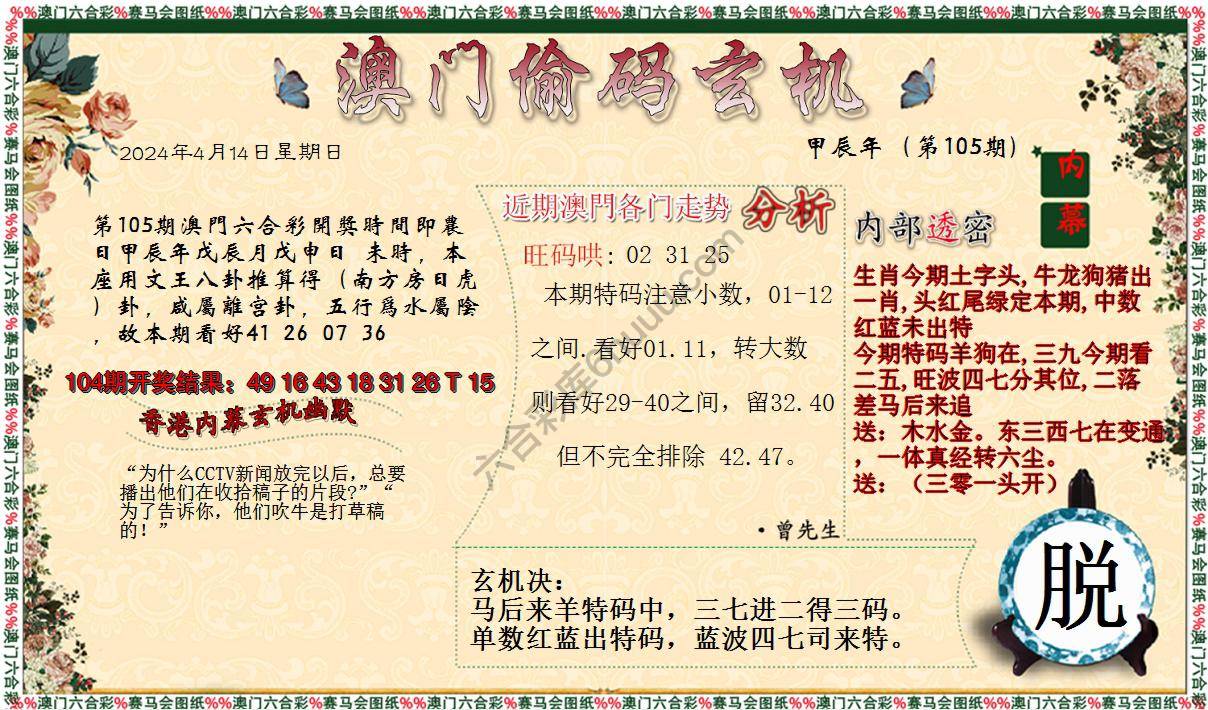 %%澳门六合彩%赛马会图纸%%澳门六合彩%赛马会图纸%%澳门六合彩%赛马会图纸%%澳门六合彩%赛马会图纸%%澳门六合彩%赛马会图纸%%澳门六合彩%赛马会图纸
澳门偷码玄机
2024年4月14日星期日
甲辰年（第105期）
内
幕
第105期澳門六合彩開獎時間即農
日甲辰年戊辰月戊申日 未時，本
座用文王八卦推算得（南方房日虎
）卦，咸屬離宫卦，五行爲水屬陰
，故本期看好41 26 07 36
104期开奖结果：49 16 43 18 31 26 T 15
香港内幕玄机幽默
“为什么CCTV新闻放完以后，总要
播出他们在收拾稿子的片段?”“
为了告诉你，他们吹牛是打草稿
的！”
近期澳門各门走势 分析
旺码哄: 02 31 25
本期特码注意小数，01-12
之间.看好01.11，转大数
则看好29-40之间，留32.40
但不完全排除 42.47。
·曾先生
内部透密
生肖今期土字头,牛龙狗猪出
一肖,头红尾绿定本期,中数
红蓝未出特
今期特码羊狗在,三九今期看
二五,旺波四七分其位,二落
差马后来追
送：木水金。东三西七在变通
，一体真经转六尘。
送：（三零一头开）
玄机决：
马后来羊特码中，三七进二得三码。
单数红蓝出特码，蓝波四七司来特。
脱
%%澳门六合彩%赛马会图纸%%澳门六合彩%赛马会图纸%%澳门六合彩%赛马会图纸%%澳门六合彩%赛马会图纸%%澳门六合彩%赛马会图纸%%澳门六合彩%赛马会图纸